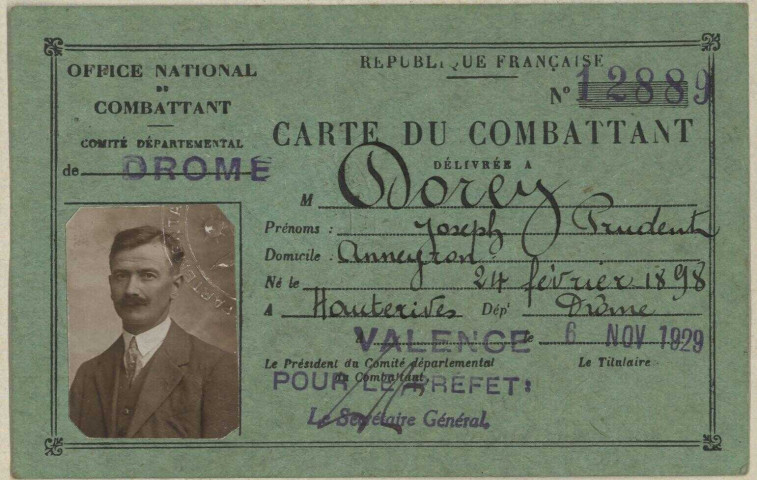 OFFICE NATIONAL
DU
COMBATTANT
COMITÉ DÉPARTEMENTAL
de DROME
REPUBLIQUE FRANÇAISE
N° 12889
CARTE DU COMBATTANT
DÉLIVRÉE A
M Dorey
Prénoms : Joseph Prudent
Domicile : Anneyron
Né le 24 février 1898
A Hauterives Dépt Drôme
A VALENCE le 6 NOV 1929
Le Président du Comité départemental
du Combattant
Le Titulaire
POUR LE PRÉFET:
Le Secrétaire Général,